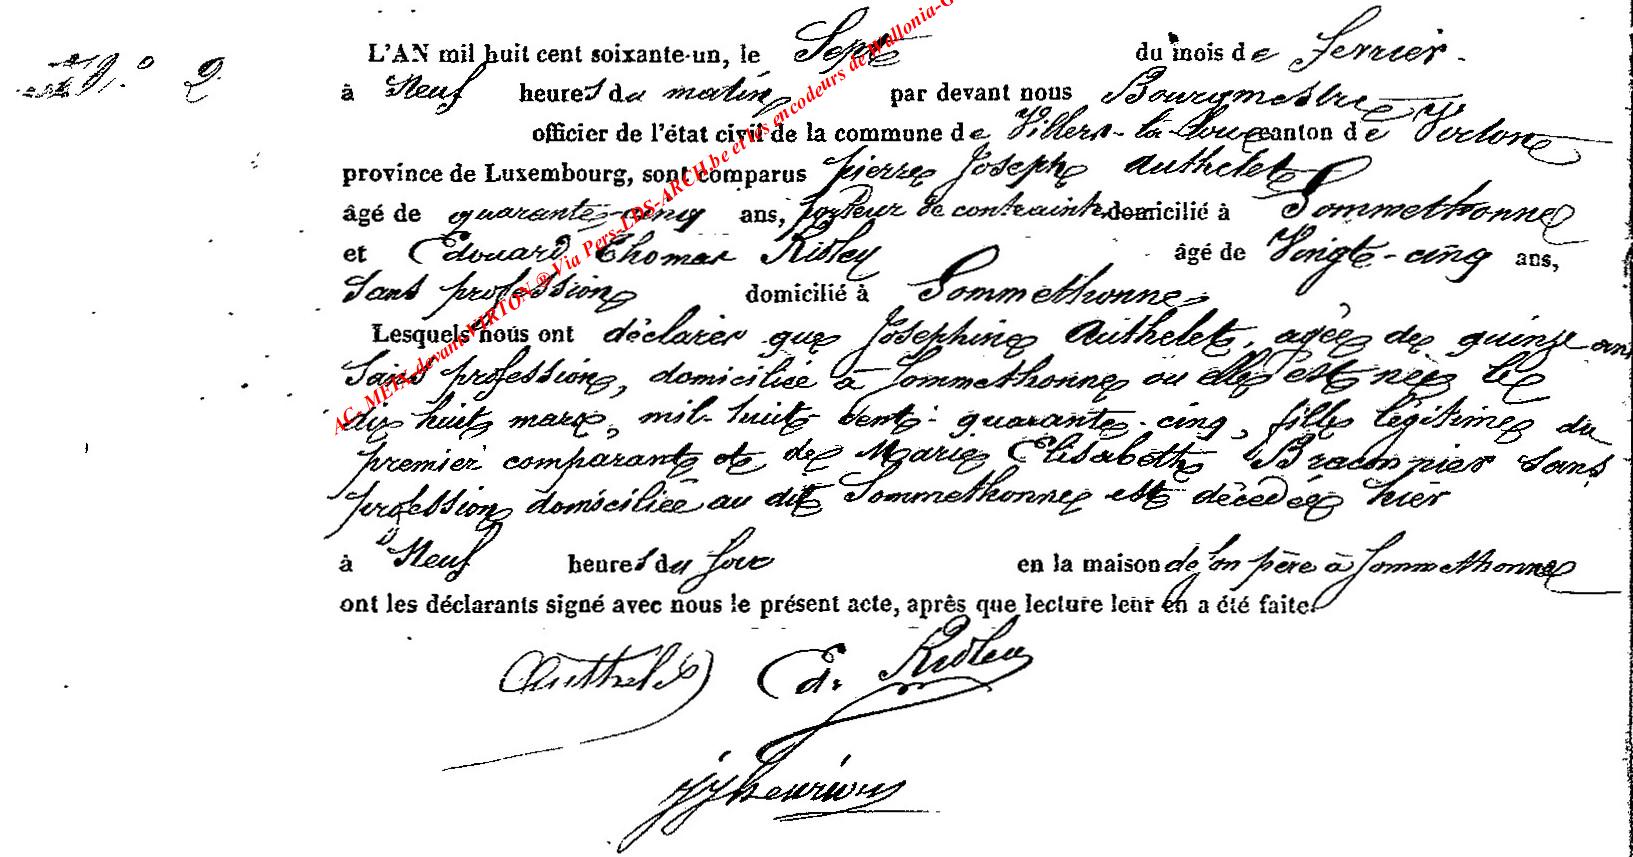 N.º 2
L'AN mil huit cent soixante-un, le Sept du mois de fevrier.
à Neuf heures du matin par devant nous Bourgmestre
officier de l'état civil de la commune de Villers-la-Loue canton de Virton
province de Luxembourg, sont comparus pierre Joseph Authelet
âgé de quarante-cinq ans, porteur de contrainte domicilié à Sommethonne
et Edouard Thomas Ridley âgé de Vingt-cinq ans,
Sans profession domicilié à Sommethonne
Lesquels nous ont déclarés que Josephine Authelet, agée de quinze ans
Sans profession, domiciliée à Sommethonne ou elle est née le
dix huit mars, mil-huit-cent-quarante-cinq, fille légitime du
premier comparant et de Marie Elisabeth Braconnier sans
profession domiciliée au dit Sommethonne est décedée hier
à Neuf heures du soir en la maison de son père à Sommethonne
ont les déclarants signé avec nous le présent acte, après que lecture leur en a été faite.
Authelet Ed. Ridley
AC- MEIX-devant-VIRTON ® Via Pers-LDS-ARCH.be et les encodeurs de Wallonia-G